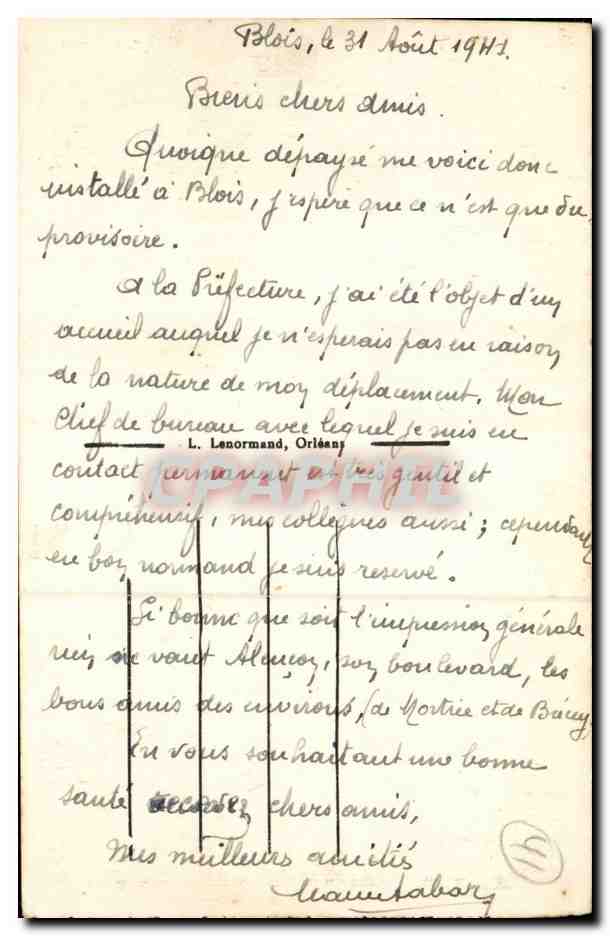 Blois, le 31 Août 1941.
Biens chers amis.
Quoique dépaysé me voici donc
installé à Blois, j'espère que ce n'est que du
provisoire.
A la Préfecture, j'ai été l'objet d'un
accueil auquel je n'esperais pas en raison
de la nature de mon déplacement. Mon
Chef de bureau avec lequel je suis en
L. Lenormand, Orléans
contact permanent est très gentil et
CPAPHIL
compréhensif, mes collègues aussi ; cependant
en bon normand je suis reservé.
Si bonne que soit l'impression générale
rien ne vaut Alençon, son boulevard, les
bons amis des environs, (de Mortrée et de
En vous souhaitant une bonne
santé chers amis,
Mes meilleurs amitiés
41